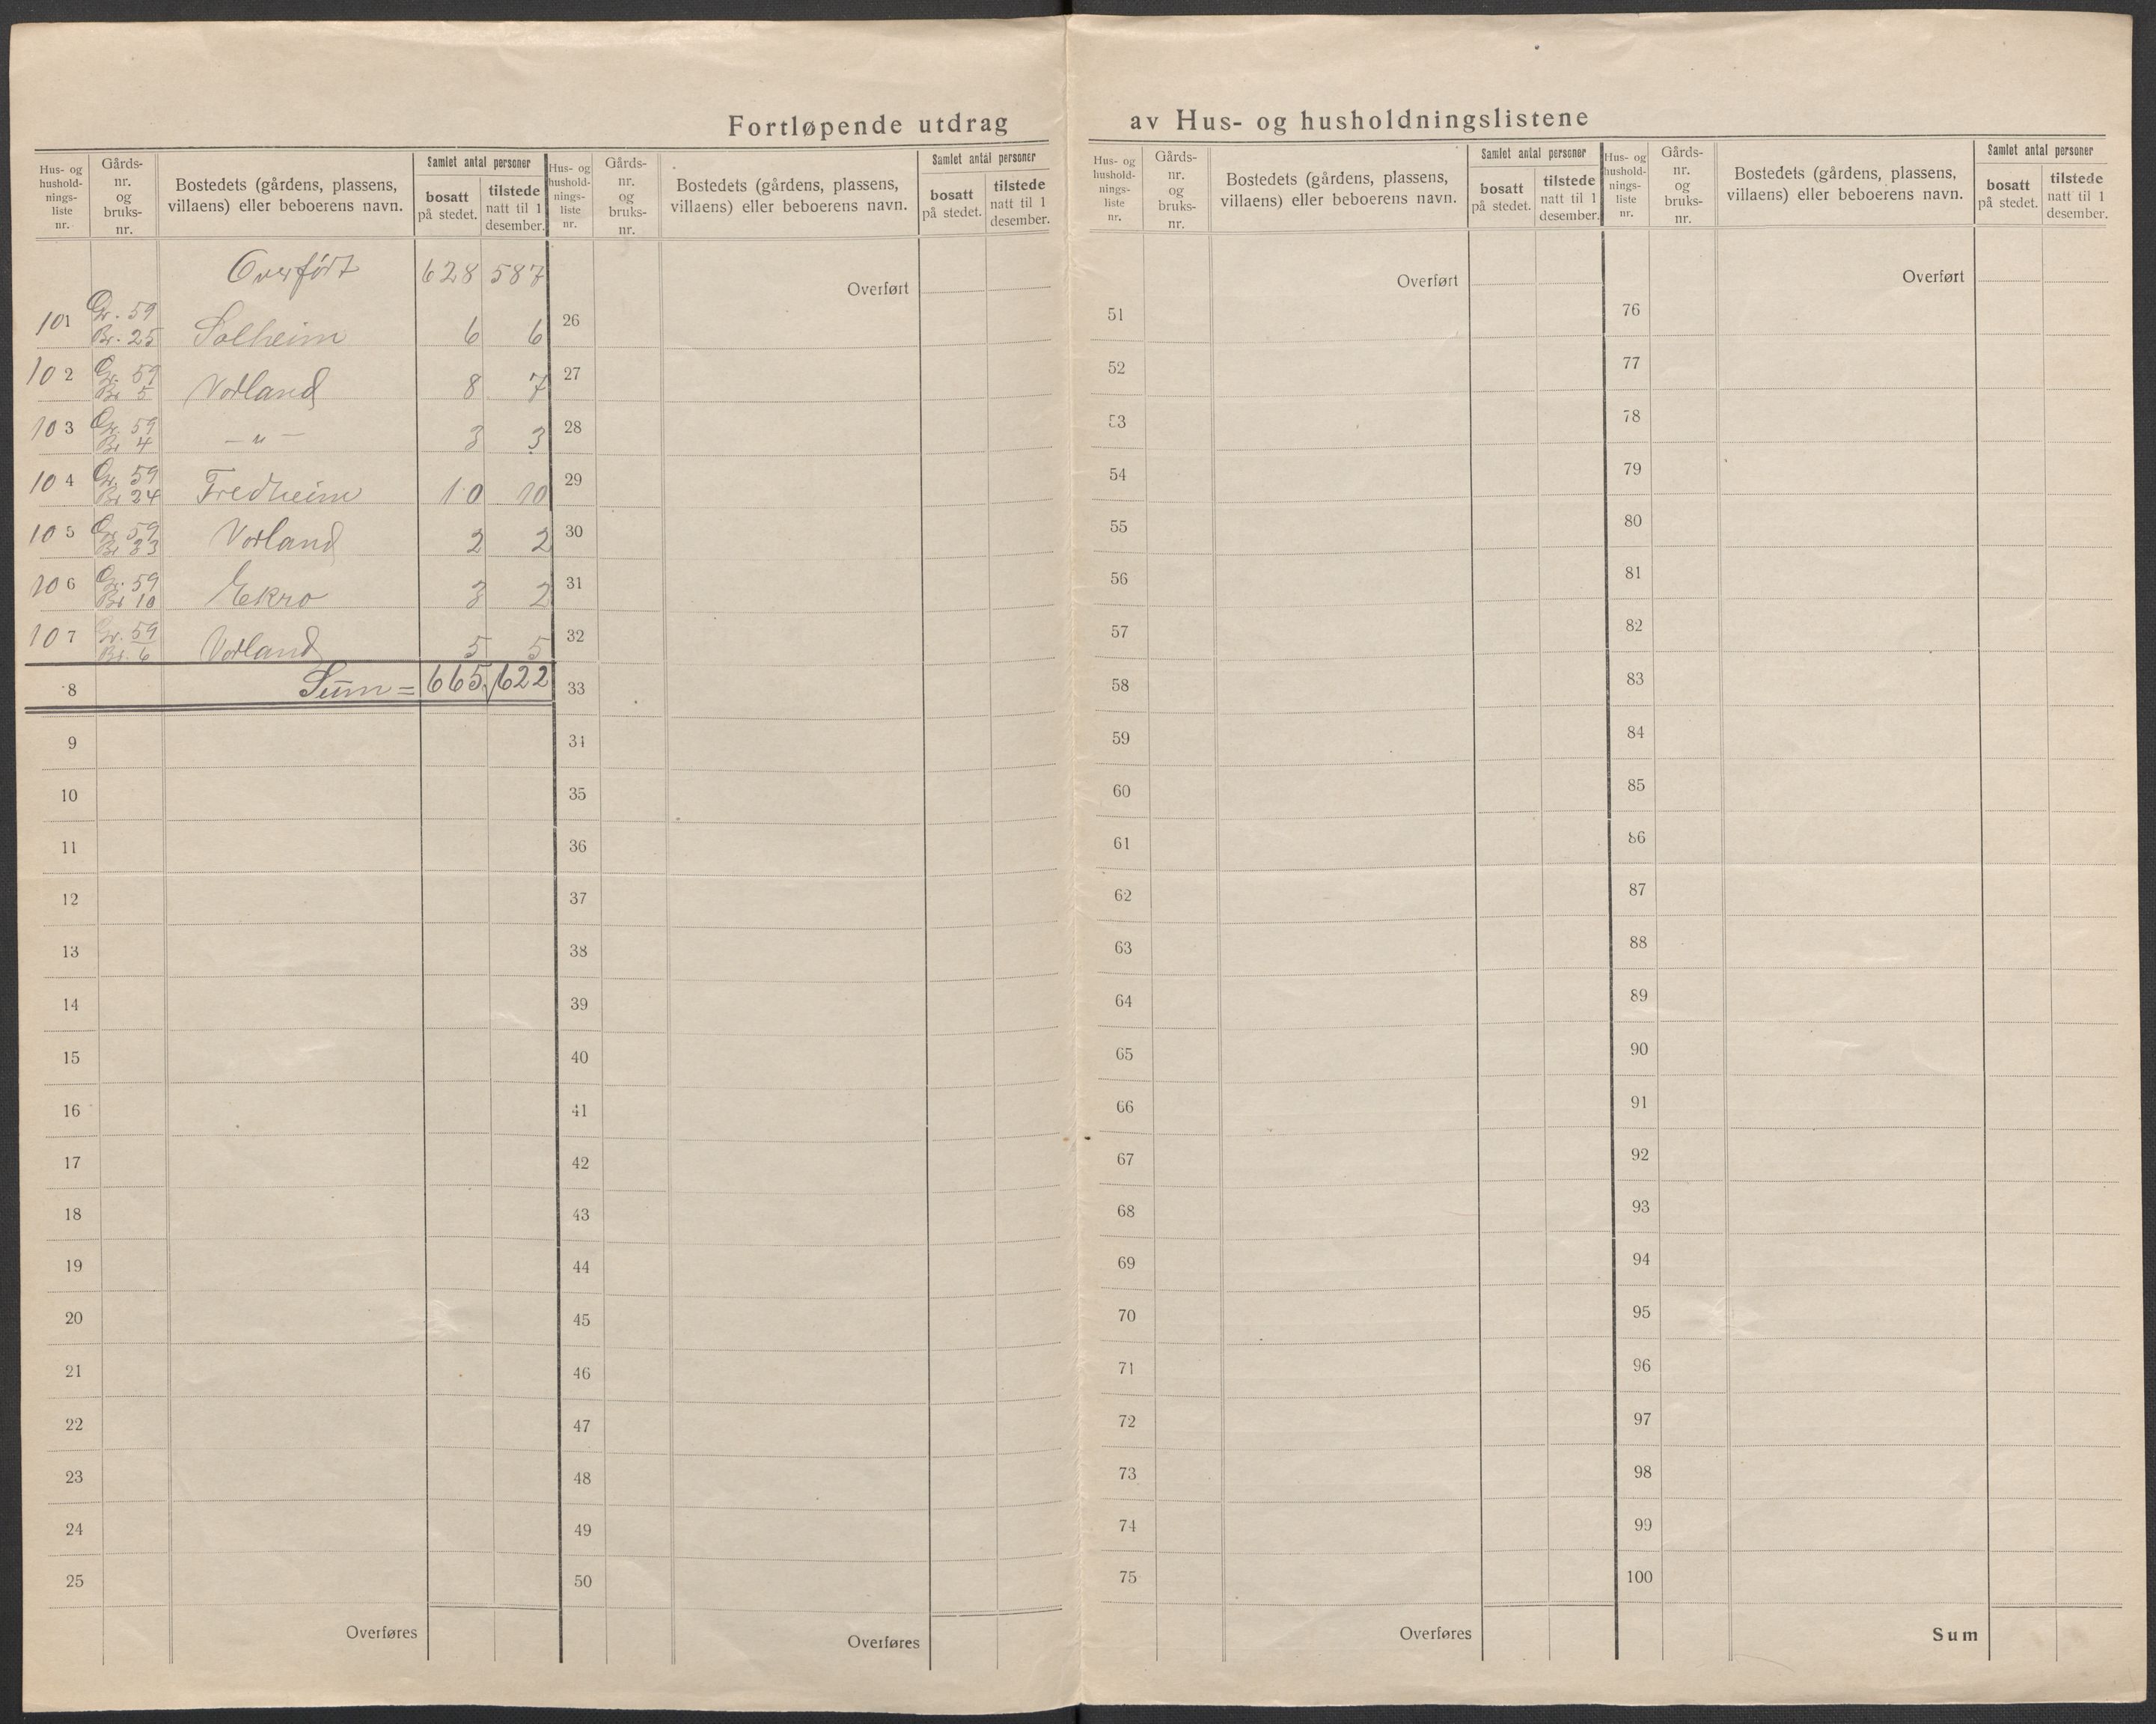 Fortløpende utdrag av Hus- og husholdningslistene
Hus- og hushold- nings- liste nr.
Gårds- nr. og bruks- nr.
Bostedets (gårdens, plassens, villaens) eller beboerens navn.
Samlet antal personer
bosatt på stedet.
tilstede natt til 1 desember.
Overført 628 587
101 Gr. 59 Br. 25 Solheim 6 6
102 Gr. 59 Br 5 Vorland 8 7
103 Gr. 59 Br 4 - " - 3 3
104 Gr. 59 Br 24 Fredheim 10 10
105 Gr 59 Br 33 Vorland 2 2
106 Gr. 59 Br 10 Ekro 3 2
107 Gr. 59 Br. 6 Vorland 5 5
8 Sum = 665 622
9
10
11
12
13
14
15
16
17
18
19
20
21
22
23
24
25
Overføres
Hus- og hushold- nings- liste nr.
Gårds- nr. og bruks- nr.
Bostedets (gårdens, plassens, villaens) eller beboerens navn.
Samlet antal personer
bosatt på stedet.
tilstede natt til 1 desember.
Overført
26
27
28
29
30
31
32
33
34
35
36
37
38
39
40
41
42
43
44
45
46
47
48
49
50
Overføres
Hus- og hushold- nings- liste nr.
Gårds- nr. og bruks- nr.
Bostedets (gårdens, plassens, villaens) eller beboerens navn.
Samlet antal personer
bosatt på stedet.
tilstede natt til 1 desember.
Overført
51
52
53
54
55
56
57
58
59
60
61
62
63
64
65
66
67
68
69
70
71
72
73
74
75
Overføres
Hus- og hushold- nings- liste nr.
Gårds- nr. og bruks- nr.
Bostedets (gårdens, plassens, villaens) eller beboerens navn.
Samlet antal personer
bosatt på stedet.
tilstede natt til 1 desember.
Overført
76
77
78
79
80
81
82
83
84
85
86
87
88
89
90
91
92
93
94
95
96
97
98
99
100
Sum